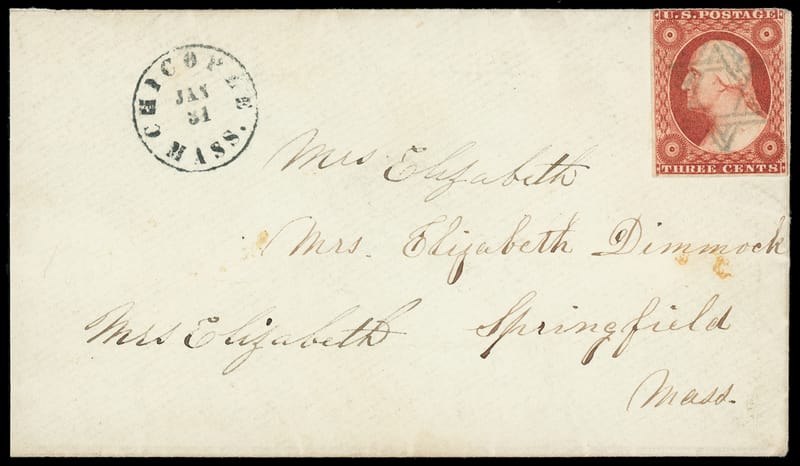 CHICOPEE MASS.
JAN
31
U.S. POSTAGE
THREE CENTS
Mrs Elizabeth
Mrs. Elizabeth Dimmock
Mrs Elizabeth Springfield
Mass.